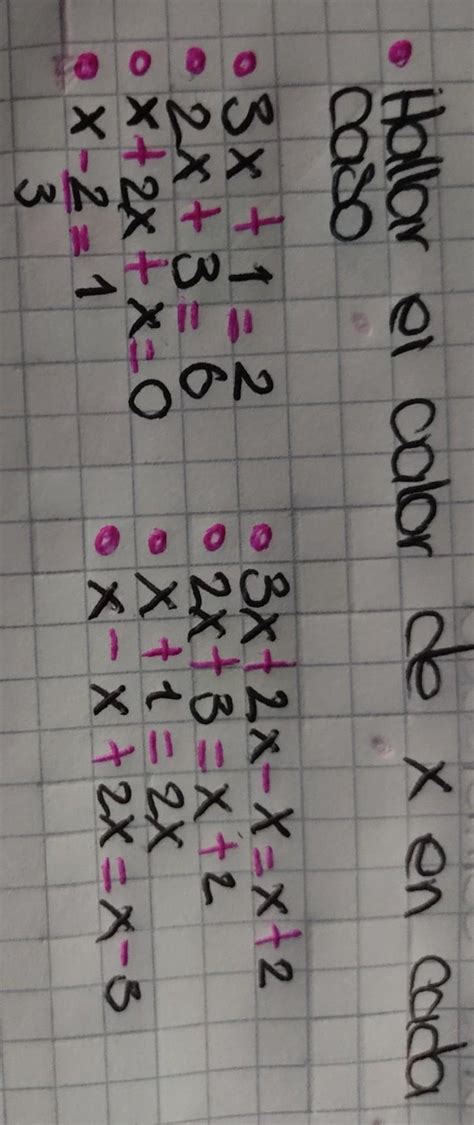 • Hallar el valor de x en cada
caso
• 3x + 1 = 2
• 2x + 3 = 6
• x + 2x + x = 0
• x - 2/3 = 1
• 3x + 2x - x = x + 2
• 2x + 3 = x + 2
• x + 1 = 2x
• x - x + 2x = x - 3